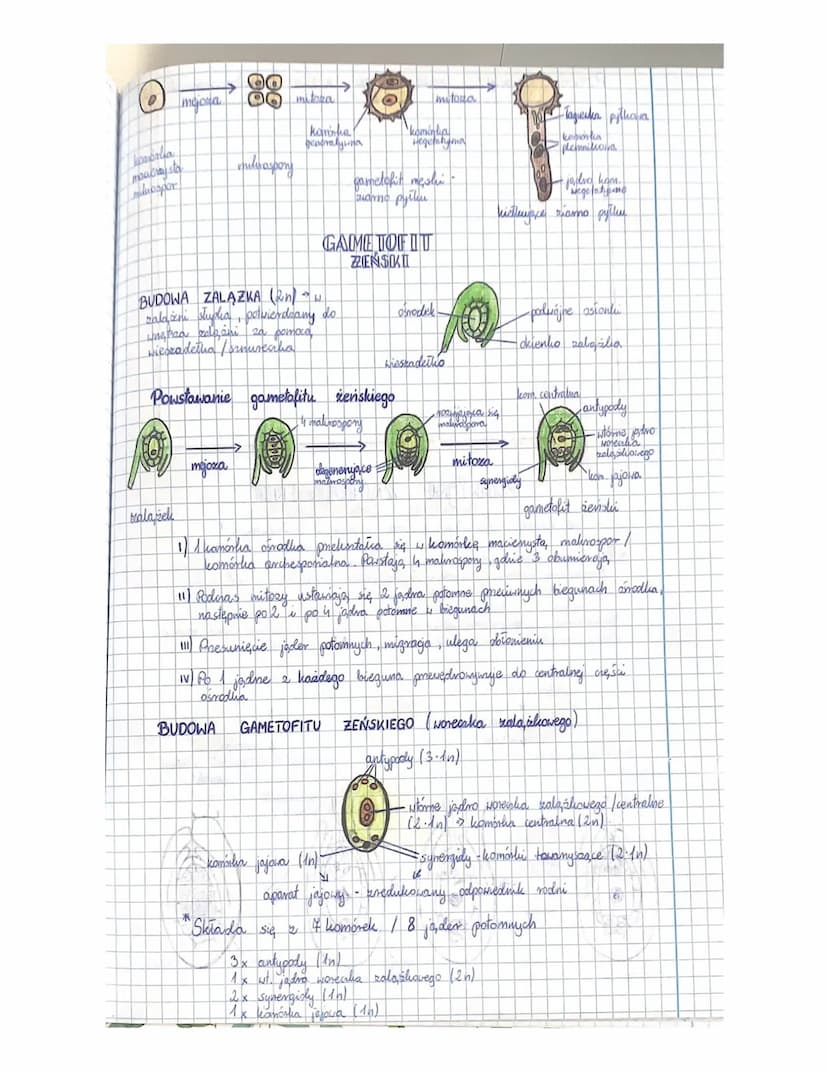 mejoza
mitoza
mitoza
komórka
macierzysta
mikrospor
mikrospory
komórka
generatywna
komórka
wegetatywna
gametofit męski -
ziarno pyłku
łagiewka pyłkowa
komórka
plemnikowa
jądro kom.
wegetatywne
kiełkujące ziarno pyłku
GAMETOFIT
ŻEŃSKI
BUDOWA ZALĄŻKA (2n) → w
zalążni słupka, potwierdzany do
wnętrza zalążni za pomocą
wieszadełka / sznureczka
ośrodek
podwójne osłonki
okienko zalążka
wieszadełko
Powstawanie gametofitu żeńskiego
zalążek
mejoza
4 makrospory
degenerujące
makrospory
rozwijająca się
makrospora
mitoza
kom. centralna
antypody
wtórne jądro
woreczka
zalążkowego
kom. jajowa
synergidy
gametofit żeński
I) 1 komórka ośrodka przekształca się w komórkę macierzystą makrospor /
komórka archesporialna. Powstają 4 makrospory, gdzie 3 obumierają
II) Podczas mitozy ustawiają się 2 jądra potomne przeciwnych biegunach ośrodka,
następnie po 2 i po 4 jądra potomne w biegunach
III) Przesunięcie jąder potomnych, migracja, ulega obłonieniu
IV) Po 1 jądrze z każdego bieguna przewędrowywuje do centralnej części
ośrodka
BUDOWA GAMETOFITU ŻEŃSKIEGO (woreczka zalążkowego)
antypody (3·1n)
wtórne jądro woreczka zalążkowego / centralne
(2·1n) → komórka centralna (2n)
komórka jajowa (1n)
synergidy - komórki towarzyszące (2·1n)
aparat jajowy - zredukowany odpowiednik rodni
* Składa się z 7 komórek / 8 jąder potomnych
3x antypody (1n)
1x wt. jądro woreczka zalążkowego (2n)
2x synergidy (1n)
1x komórka jajowa (1n)